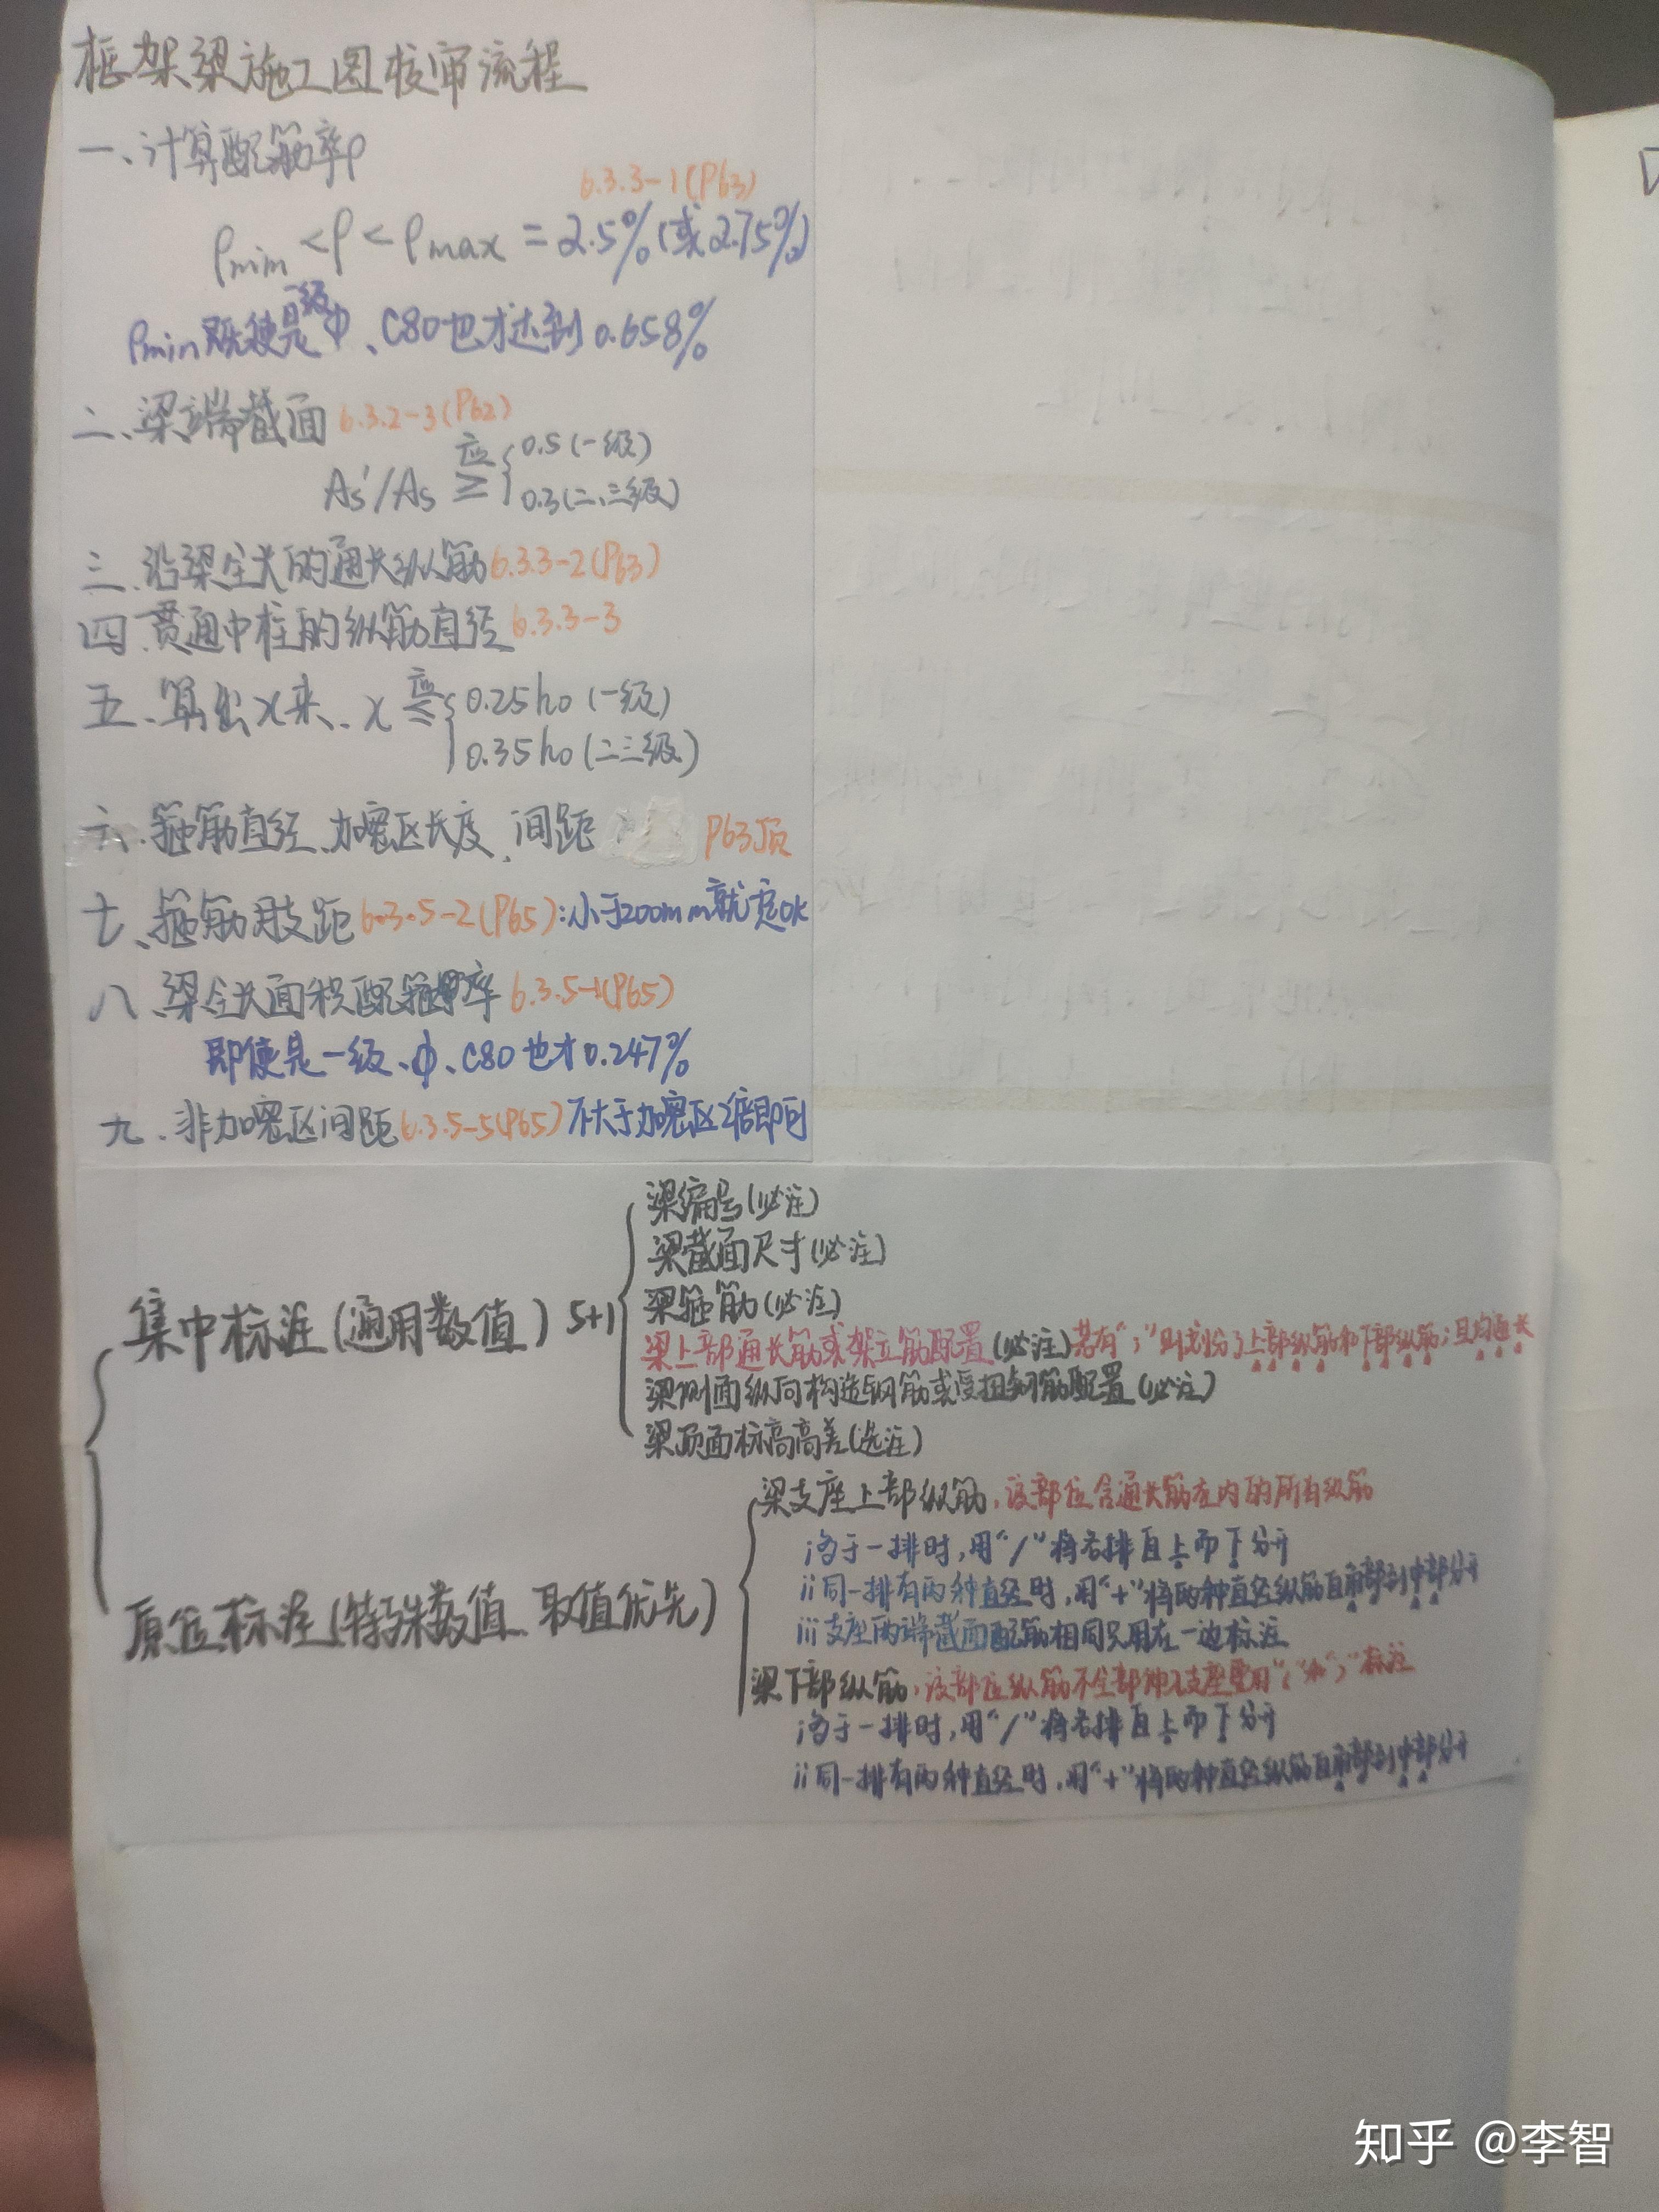 框架梁施工图校审流程
一、计算配筋率ρ
6.3.3-1(P63)
ρmin<ρ<ρmax=2.5%(或2.75%)
ρmin既使是一级、ф、C80也才达到0.658%
二、梁端截面 6.3.2-3(P62)
As'/As 应≥ 0.5(一级)
0.3(二、三级)
三、沿梁全长的通长纵筋6.3.3-2(P63)
四、贯通中柱的纵筋直径 6.3.3-3
五、算出x来、x 应≤ 0.25h0(一级)
0.35h0(二三级)
六、箍筋直径、加密区长度、间距 P63顶
七、箍筋肢距6.3.5-2(P65):小于200mm就定ok
八、梁全长面积配箍率 6.3.5-1(P65)
即使是一级、ф、C80也才0.247%
九、非加密区间距6.3.5-5(P65)不大于加密区2倍即可
梁编号(必注)
梁截面尺寸(必注)
集中标注(通用数值) 5+1
梁箍筋(必注)
梁上部通长筋或架立筋配置(必注)若有“;”则划分了上部纵筋和下部纵筋;且均通长
梁侧面纵向构造钢筋或受扭钢筋配置(必注)
梁顶面标高高差(选注)
梁支座上部纵筋,该部位含通长筋在内的所有纵筋
i多于一排时,用“/”将各排自上而下分开
ii同一排有两种直径时,用“+”将两种直径纵筋自角部到中部分开
原位标注(特殊数值、取值优先)
iii支座两端截面配筋相同只用在一边标注
梁下部纵筋,该部位纵筋不全部伸入支座要用 标注
i多于一排时,用“/”将各排自上而下分开
ii同一排有两种直径时,用“+”将两种直径纵筋自角部到中部分开
知乎 @李智